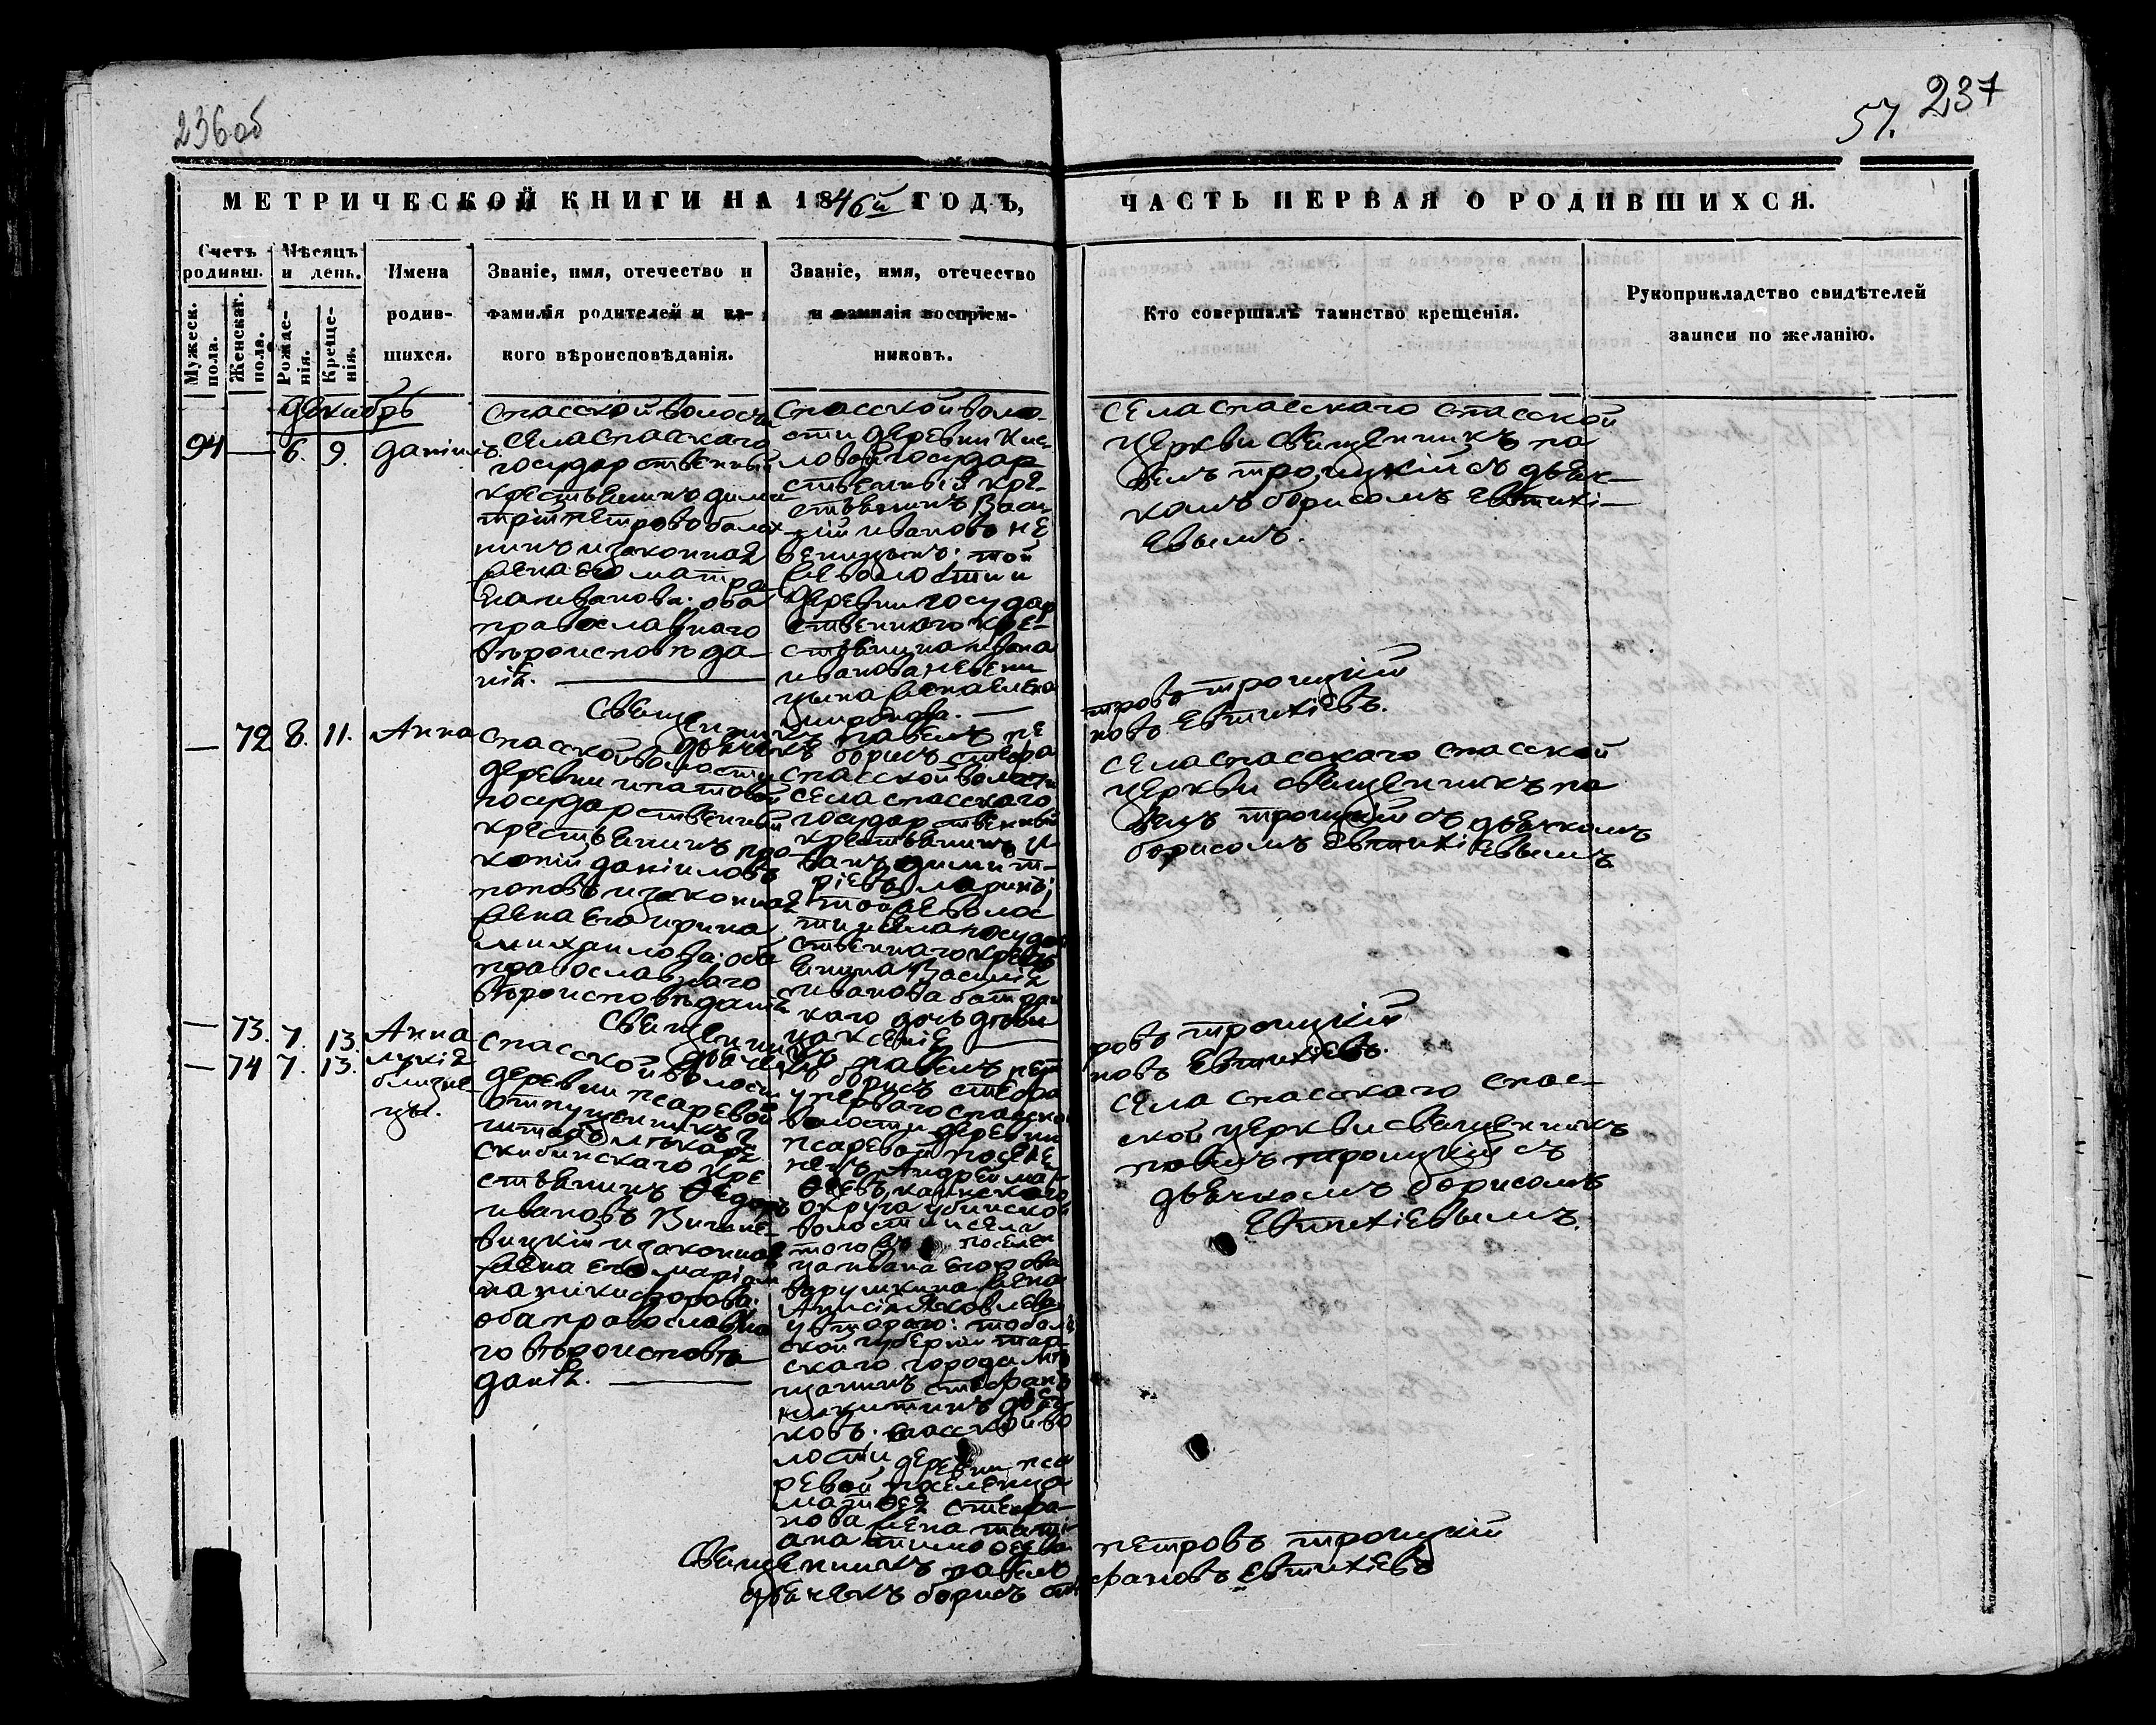 236 об
57. 237
МЕТРИЧЕСКОЙ КНИГИ НА 1846й ГОДЪ,
ЧАСТЬ ПЕРВАЯ О РОДИВШИХСЯ.
Счетъ родивш.
Мужеск. пола.
Женскаг. пола.
Мѣсяцъ и день.
Рожде-
нія.
Креще-
нія.
Имена
родив-
шихся.
Званіе, имя, отечество и
фамилія родителей и ка-
кого вѣроисповѣданія.
Званіе, имя, отечество
и фамилія воспріем-
никовъ.
Кто совершалъ таинство крещенія.
Рукоприкладство свидѣтелей
записи по желанію.
декабрь
94 — 6. 9. даніилъ.
спасской волости
села спасскаго
государственный
крестьянинъ дими
трій петровъ балах
нинъ и законная
жена его матре
на иванова: оба
православнаго
вѣроисповѣда-
нія.
спасской воло-
сти деревни Кис
ловой государ
ственный кре-
стьянинъ Васи
лій ивановъ не
веницынъ: той
же волости и
деревни государ
ственнаго кре-
стьянина ивана
иванова невени
цына жена елена
миронова. —
села спасскаго спасской
церкви священникъ па
велъ троицкій съ дьяч-
комъ борисомъ Евтихі-
евымъ.
священникъ павелъ пе
тровъ троицкій
дьячекъ борисъ стефа
новъ Евтихіевъ.
— 72 8. 11. Анна
спасской волости
деревни ипатовой
государственный
крестьянинъ про-
копій даніиловъ
поповъ и законная
жена его ирина
михаилова: оба
православнаго
вѣроисповѣданія
спасской волости
села спасскаго
государственный
крестьянинъ и
ванъ димит-
ріевъ маринъ;
той же волос
ти и села государ
ственнаго кресть
янина Василія
иванова
каго дочь деви
ца ксенія
села спасскаго спасской
церкви священникъ па
велъ троицкій съ дьячкомъ
борисомъ Евтихіевымъ
священникъ павелъ пет
ровъ троицкій
дьячекъ борисъ стефа
новъ Евтихіевъ.
— 73. 7. 13. Анна
— 74 7. 13. лукія
близне-
цы.
спасской волости
деревни псаревой
отпущенникъ г
штабъ лѣкаря
скибинскаго кре
стьянинъ Ѳедоръ
ивановъ
вицкій и законная
жена его маріам
на никифорова:
оба православна
го вѣроисповѣ-
данія.
у перваго спасской
волости деревни
псаревой поселе
нецъ Андрей мат
ѳеевъ, каинскаго
округа убинской
волости и села
тогожъ поселен
ца ивана Егорова
вдрушкина жена
Анисія Яковлева
у втораго: тоболь
ской губерніи тар-
скаго города мѣ
щанинъ стефанъ
никитинъ дьяч
ковъ. спасской во
лости деревни пса
ревой поселенца
матѳея стефа-
нова жена тати
ана тимоѳеева
села спасскаго спас-
ской церкви священникъ
павелъ троицкій съ
дьячкомъ борисомъ
Евтихіевымъ.
Священникъ павелъ петровъ троицкій
дьячекъ борисъ стефановъ Евтихіевъ